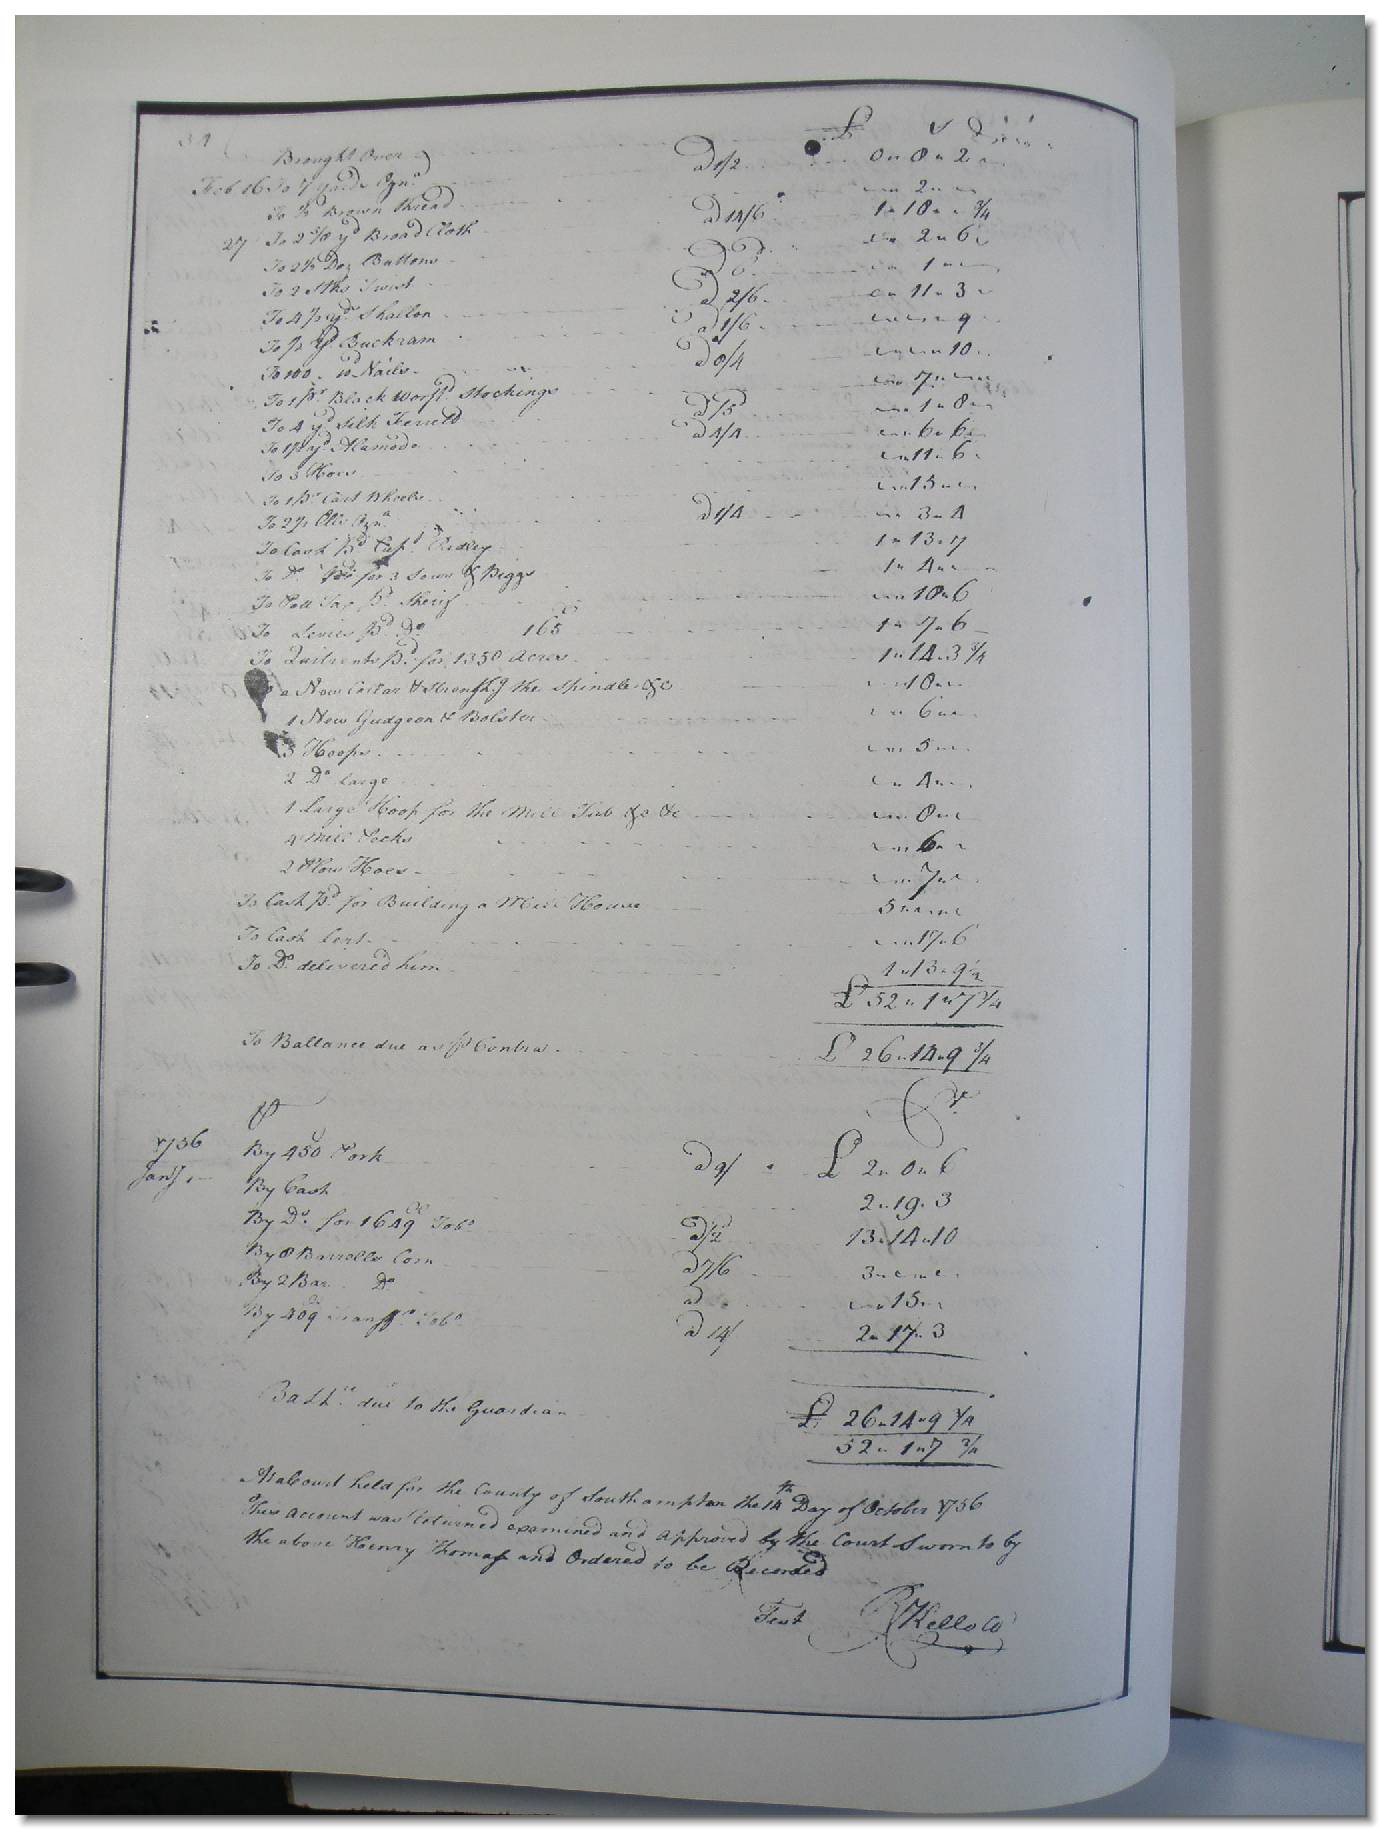 34
Brought Over
Feb 16 To 7 yards Ozn.s a 1/2 0 " 8 " 2
To 1/2 Brown thread 2
27 To 2 5/8 yd Broad Cloth a 14/6 1 " 18 " 3/4
To 2 1/2 Doz Buttons 2 " 6
To 2 Sks Twist a 6 1
To 4 1/2 yds Shallon a 2/6 11 " 3
To 1/2 yd Buckram a 1/6 9
To 100 10d Nails 10
To 1 pr Black Worstd Stockings 7
To 4 yd Silk Ferretd a /5 1 " 8
To 1 1/2 yd Alamode a 4/4 6 " 6
To 3 Hoes 11 " 6
To 1 pr Cart Wheels 15
To 2 1/2 Ells Ozns a 1/4 3 " 4
To Cash pd Capt Ridley 1 " 13 " 7
To Do for 3 Sows & Piggs 1 " 4
To Poll Tax pd Sherif 18 " 6
To Levies pd Do 165 1 " 7 " 6
To Quitrents pd for 1350 Acres 1 " 14 " 3 3/4
a New Collar & Strengthg the Spindle &c 10
1 New Gudgeon & Bolster 6
3 Hoops 5
2 Do large 4
1 large Hoop for the Mill Tub &c &c 8
4 Mill Pecks 6
2 Plow Hoes 7
To Cash pd for Building a Mill House 5
To Cash lent 17 " 6
To Do delivered him 1 " 13 " 9
£ 52 " 1 " 7 3/4
To Ballance due as p Contra £ 26 " 14 " 9 3/4
Cr
1756
Jany By 450 Pork a 9/ £ 2 " 0 " 6
By Cash 2 " 19 " 3
By Do for 1649 Tobo a /2 13 " 14 " 10
By 8 Barrells Corn a 7/6 3
By 2 Bar Do a 15
By 409 Tobo a 14/ 2 " 17 " 3
Ballce due to the Guardian £ 26 " 14 " 9 3/4
52 " 1 " 7 3/4
At a Court held for the County of Southampton the 14th Day of October 1756
This account was returned examined and approved by the Court Sworn to by
the above Henry Thomas and Ordered to be Recorded
Test R Kello Cl